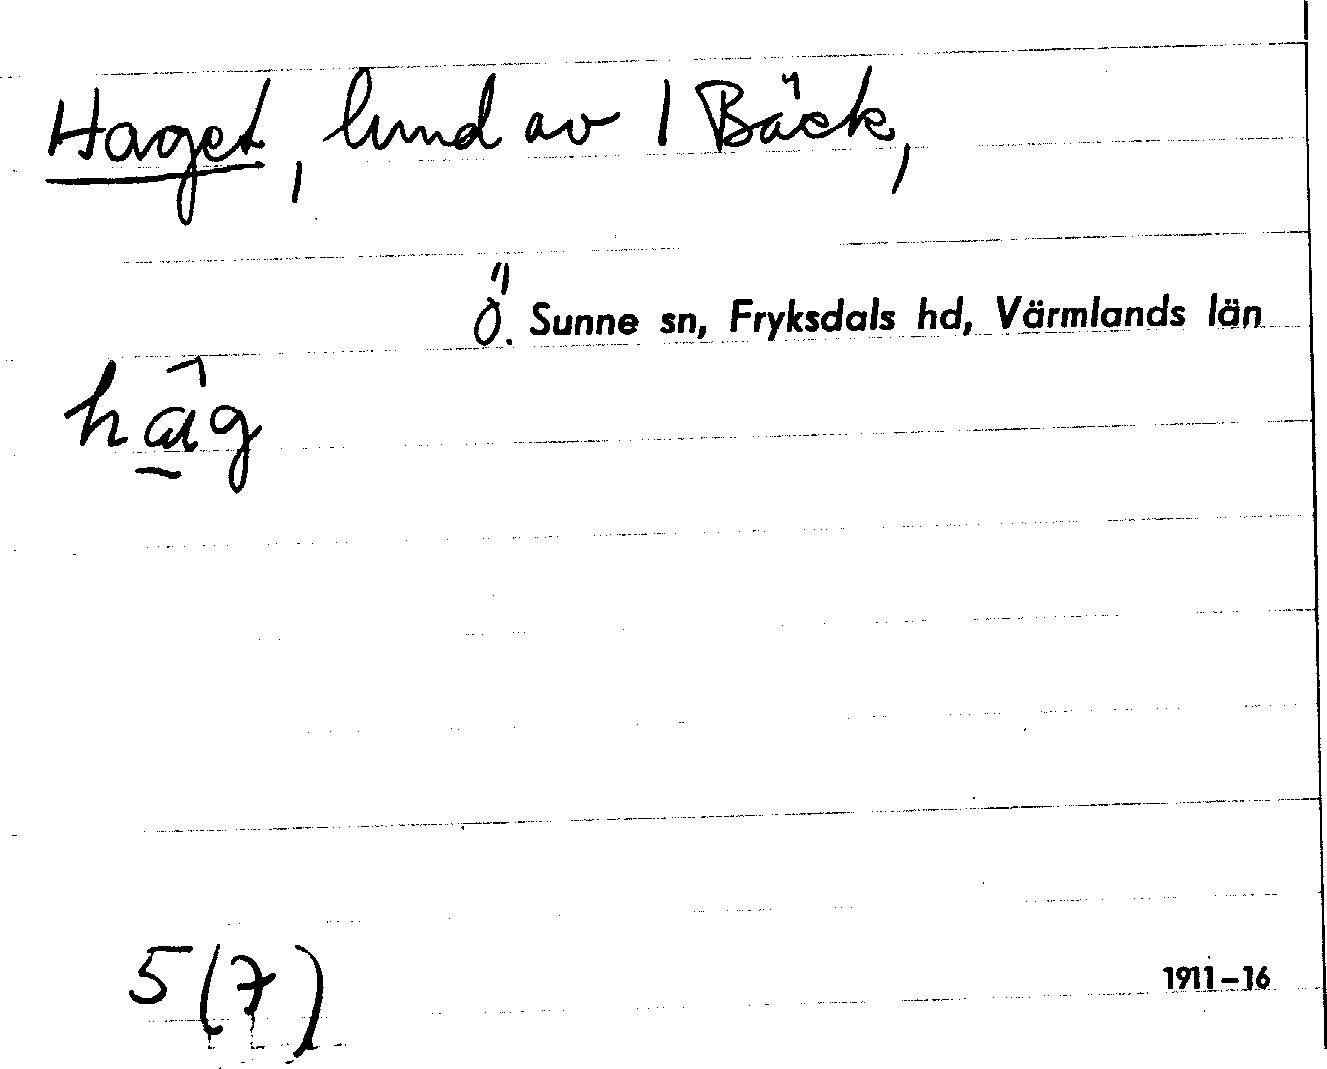 Haget, lund av 1 Bäck,
Ö. Sunne sn, Fryksdals hd, Värmlands län
5(7)
1911–16